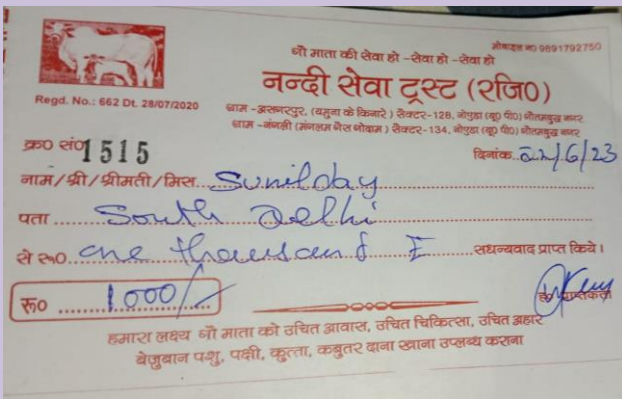 मोबाइल न0 9891792750
गौ माता की सेवा हो -सेवा हो -सेवा हो
नन्दी सेवा ट्रस्ट (रजि0)
Regd. No.: 662 Dt. 28/07/2020
ग्राम -असगरपुर, (यमुना के किनारे) सेक्टर-128, नोएडा (यू0 पी0) गौतमबुद्ध नगर
ग्राम -नंगली (मंगलम गैस गोदाम) सेक्टर-134, नोएडा (यू0 पी0) गौतमबुद्ध नगर
क्र0 सं0 1515
दिनांक 22/6/23
नाम/श्री/श्रीमती/मिस Sunil day
पता South Delhi
से रू0 one thousand सधन्यवाद प्राप्त किये।
रू0 1000/-
ह0 प्राप्तकर्ता
हमारा लक्ष्य गौ माता को उचित आवास, उचित चिकित्सा, उचित अहार
बेजुबान पशु, पक्षी, कुत्ता, कबुतर दाना खाना उप्लब्ध कराना